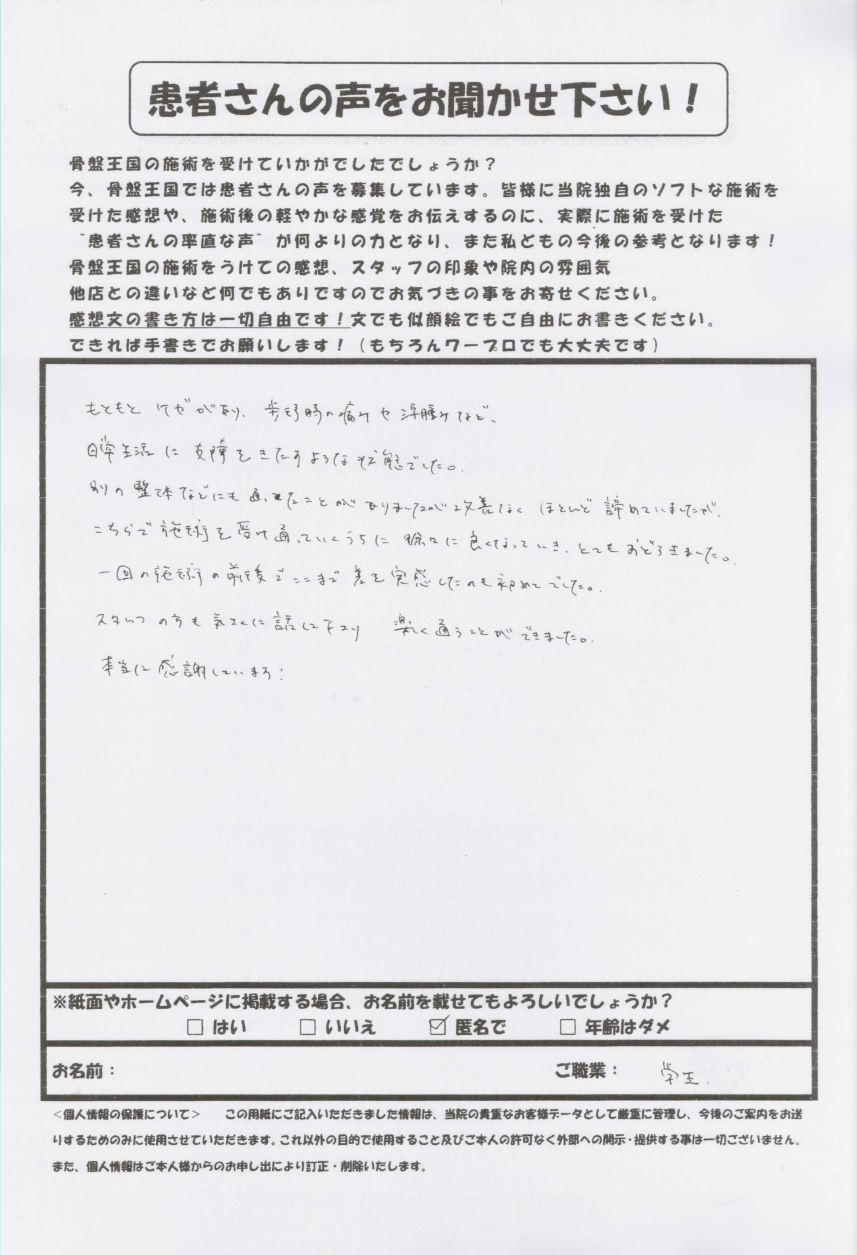 患者さんの声をお聞かせ下さい！
骨盤王国の施術を受けていかがでしたでしょうか？
今、骨盤王国では患者さんの声を募集しています。皆様に当院独自のソフトな施術を
受けた感想や、施術後の軽やかな感覚をお伝えするのに、実際に施術を受けた
¨患者さんの率直な声¨が何よりの力となり、また私どもの今後の参考となります！
骨盤王国の施術をうけての感想、スタッフの印象や院内の雰囲気
他店との違いなど何でもありですのでお気づきの事をお寄せください。
感想文の書き方は一切自由です！文でも似顔絵でもご自由にお書きください。
できれば手書きでお願いします！（もちろんワープロでも大丈夫です）
もともとケガがあり、歩行時の痛みや浮腫みなど、
日常生活に支障をきたすような状態でした。
別の整体などにも通ったことがありましたが改善なくほとんど諦めていましたが、
こちらで施術を受け通っていくうちに徐々に良くなっていき、とてもおどろきました。
一回の施術の前後でここまで差を実感したのも初めてでした。
スタッフの方も気さくに話して下さり 楽しく通うことができました。
本当に感謝しています！
※紙面やホームページに掲載する場合、お名前を載せてもよろしいでしょうか？
□ はい □ いいえ ☑ 匿名で □ 年齢はダメ
お名前： ご職業： 学生.
＜個人情報の保護について＞ この用紙にご記入いただきました情報は、当院の貴重なお客様データとして厳重に管理し、今後のご案内をお送
りするためのみに使用させていただきます。これ以外の目的で使用すること及びご本人の許可なく外部への開示・提供する事は一切ございません。
また、個人情報はご本人様からのお申し出により訂正・削除いたします。